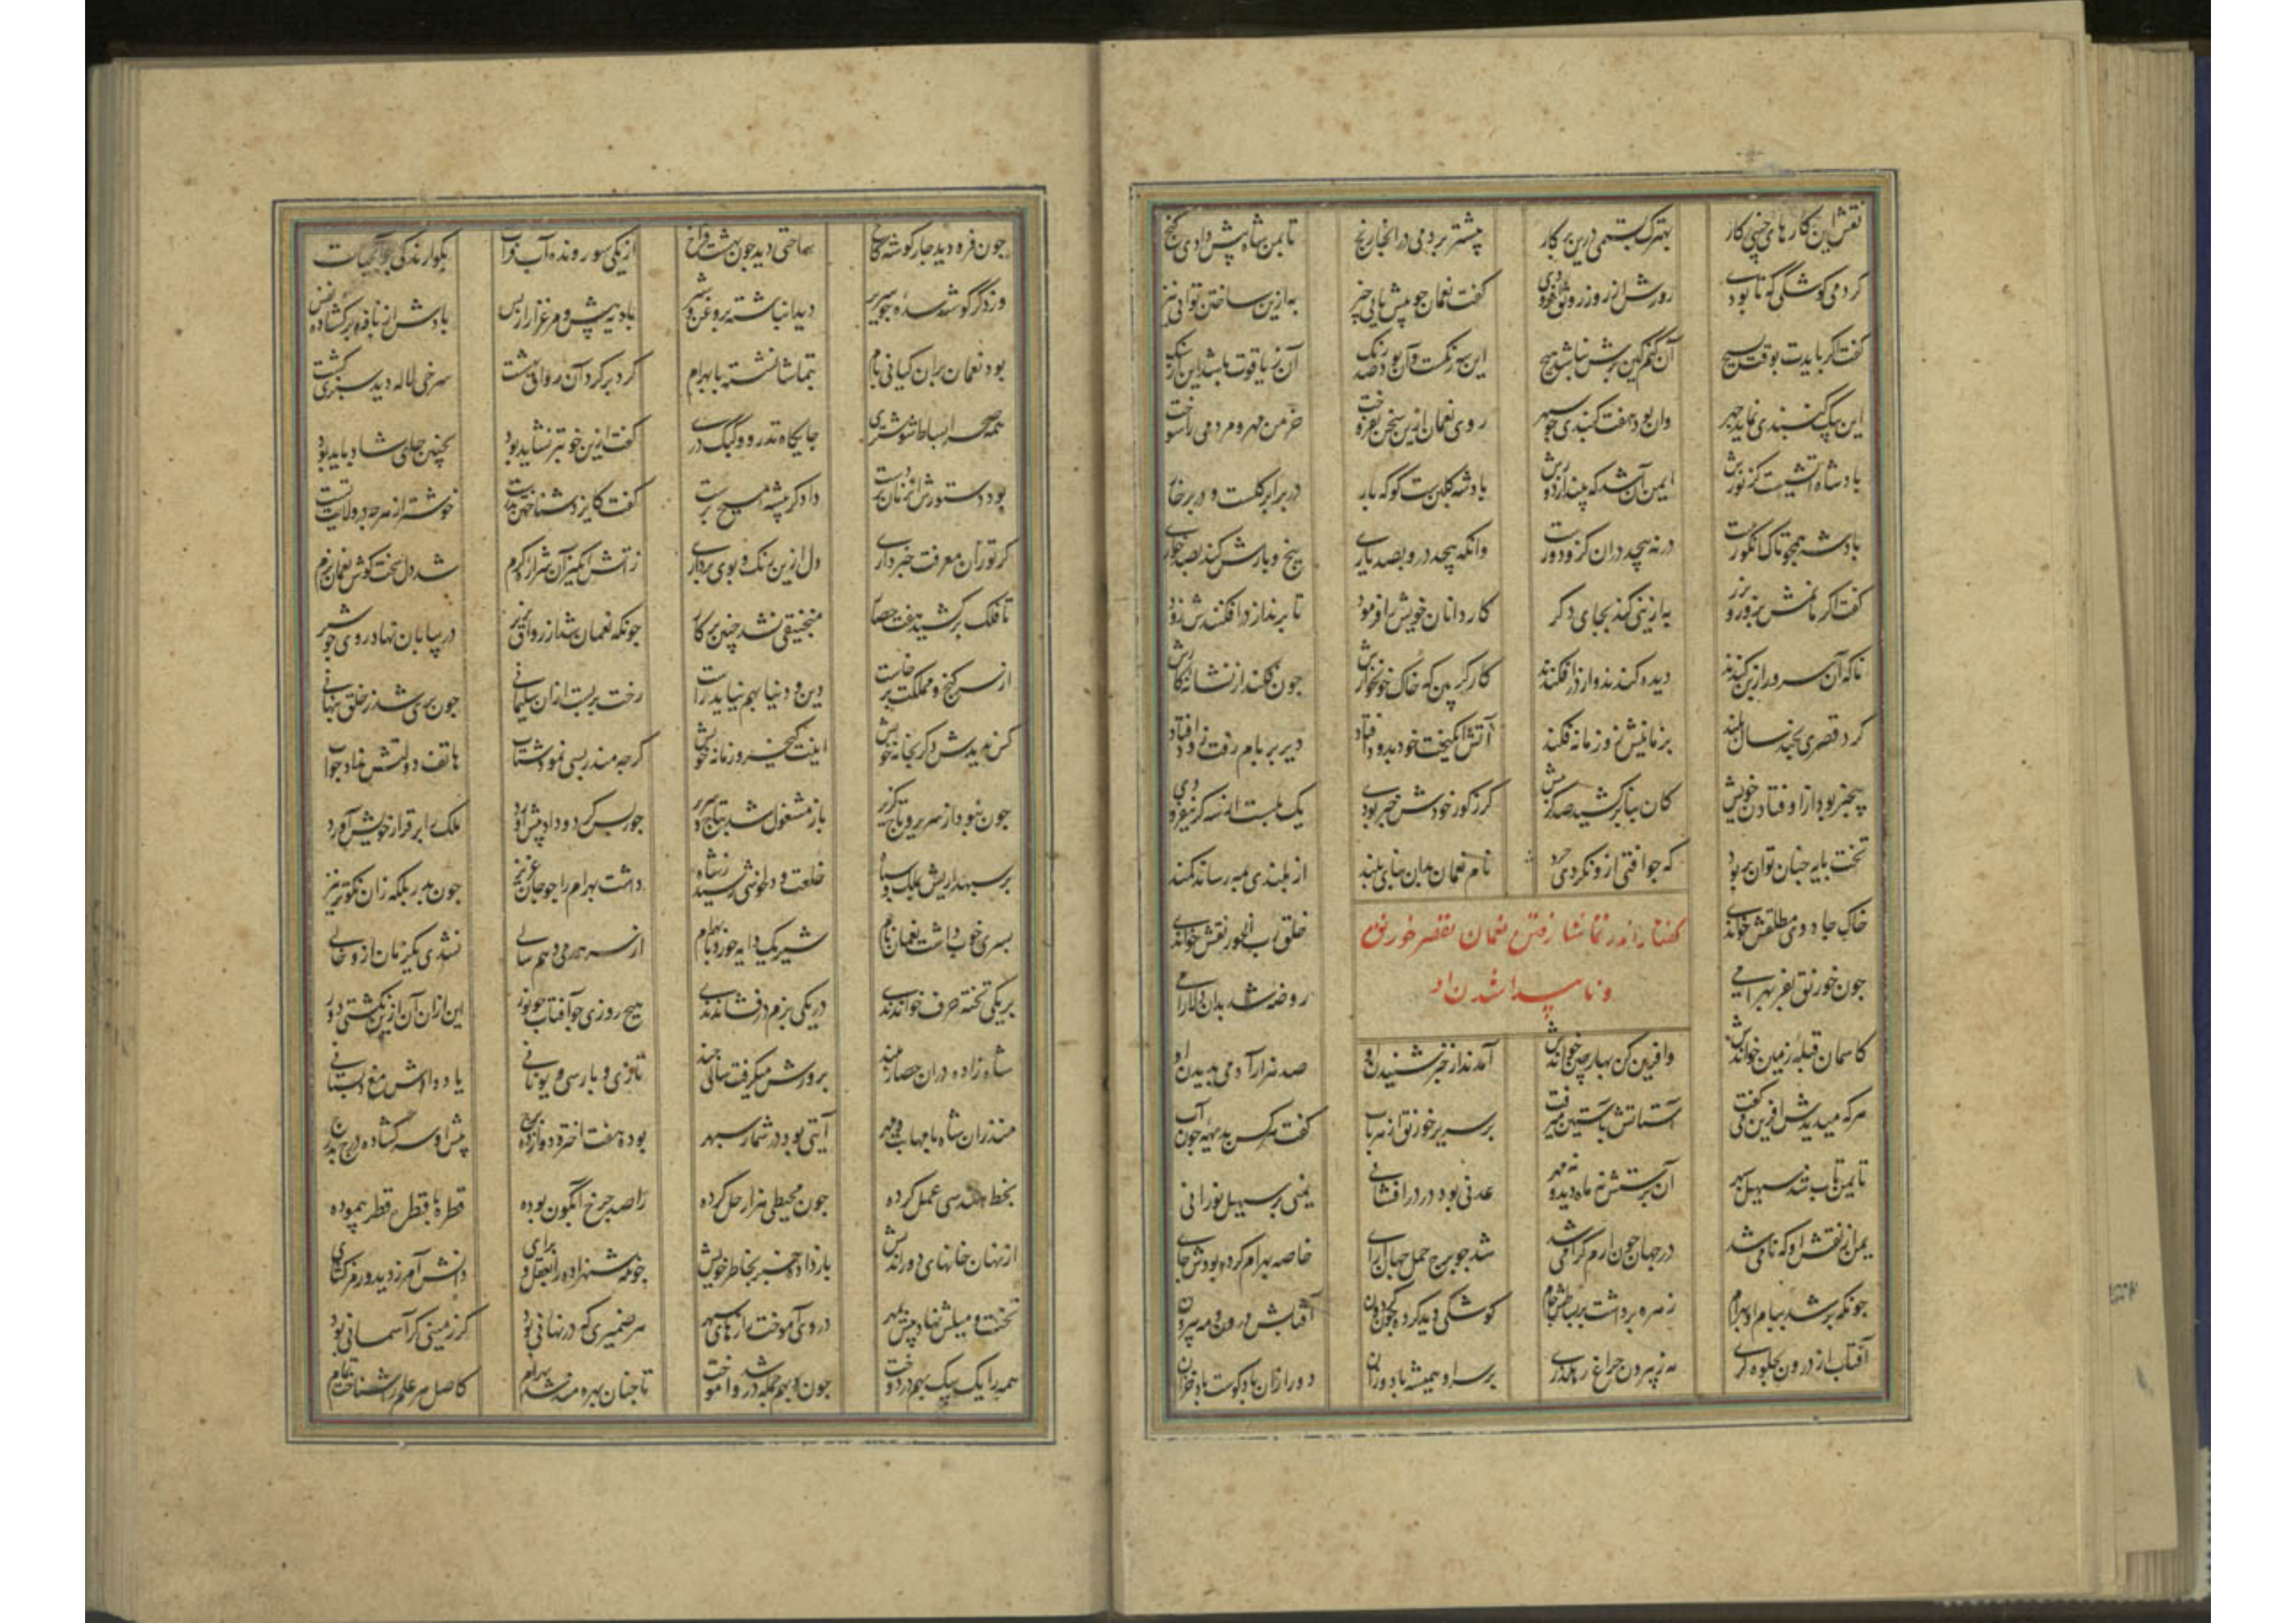 نقش این کارهای چینی کار بهترک بستمی درین پرکار پیشتر بردمی درانجا رنج تا بمن شاه پیش دادی گنج
کردمی کوشکی که تا بودی روزش از روز رونق افزودی گفت نعمان چو پیش یابی چیز به ازین ساختن توانی نیز
گفت اکر بایدت بوقت بسیچ آن کنم کین برش نباشد هیچ این سه رنکست و آن بود صد رنک آن ز یاقوت باشد این از سنک
این بیک کنبدی نماید چهر وان بود هفت کنبدی چو سپهر روی نعمان ازین سخن بفروخت خرمن مهر و مردمی را سوخت
بادشاه آتشیست کز نورش ایمن آن شد که بیند از دورش بادشه کلبنست کو که بار در برابر کلست و در بر خار
بادشه همچو تاک انکورست درنپیچد دران کزو دورست وانکه پیچد درو بصد یاری بیخ و بارش کند بصد خواری
کفت اکر مانمش بزور و بزر به ازینی کند بجای دکر کاردانان خویش را فرمود تا برند از دز افکنندش زود
تا که آن سرو را ز بن کندند دیده کندند و از دز افکندند کارکر بین که خاک خونخوارش چون فکند از نشانه کارش
کرد قصری بچند سال بلند بزمانیش ازو زمانه فکند آتش انکیخت خود بدود افتاد دیر بر بام رفت و زود افتاد
بیخبر بود از اوفتادن خویش کان بنا برکشید صد کز بیش کر ز کور خودش خبر بودی یک بدست از سه کز نیفزودی
تخت پایه چنان توان بر برد که چو افتی ازو نکردی خرد نام نعمان بدان بنای بلند از بلندی بمه رساند کمند
خاک جادوی مطلقش خواندی خلق رب الخورنقش خواندی
گفتار اندر تماشا رفتن نعمان بقصر خورنق
و ناپیدا شدن او
چون خورنق بفر بهرامی روضه شد بدان دلارامی
کاسمان قبله زمین خواندش وافرین کن بهار چین خواندش آمدند از خبر شنیدن او صد هزار آدمی بدیدن او
هرکه میدیدش آفرین میکفت آستانش بآستین میرفت بر سریر خورنق از هر باب کفت هرکس بدیهه چون آب
تا یمن تاب شد سهیل سپهر آن پرستش نه ماه دید و نه مهر عدنی بود در درافشانی یمنی پر سهیل نورانی
یمن از نقش او که نامی شد در جهان چون ارم کرامی شد شد چو برج حمل جهان آرای خاصه بهرام کرده بودش جای
چونکه بر شد ببام او بهرام زهره برداشت بر نشاطش جام کوشکی دید کرده چون کردون آفتابش درون و مه بیرون
آفتاب از درون بجلوه کری مه ز بیرون چراغ رهکذری بر سر او همیشه باد وزان دور ازان باد کوست باد خزان
چون فرو دید چار کوشه کاخ ساحتی دید چون بهشت فراخ از یکی سو رونده آب فرات بکوارندکی چو آب حیات
وز دکر کوشه سدره جوی سریر دید انباشته بروغن و شیر بادیه پیش و مرغزار از پس بادش از نافه برکشاده نفس
بود نعمان بران کیانی بام بتماشا نشسته با بهرام کرد بر کرد آن رواق بهشت سرخی لاله دید سبزی کشت
همه صحرا بساط شوشتری جایکاه تدرو و کبک دری کفت ازین خوبتر نشاید بود بچنین جای شاد باید بود
بود دستورش آن زمان بر دست دادکر پیشه مسیح پرست کفت کایزد شناختن بدرست خوشتر از هرچه در ولایت تست
کر تو زان معرفت خبر داری دل ازین رنک و بوی برداری زاتش انکیز آن شراره کرم شد دل سخت کوش نعمان نرم
تا فلک برکشید هفت حصار منجنیقی نشد چنین بر کار چونکه نعمان شد از رواق بزیر در بیابان نهاد روی چو شیر
از سر کنج و مملکت برخاست دین و دنیا بهم نیاید راست رخت بربست ازان سلیمانی چون پری شد ز خلق پنهانی
کس ندیدش دکر بخانه خویش اینت کیخسرو زمانه خویش کرچه منذر بسی نمود شتاب هاتف دولتش نداد جواب
چون نبود از سریر و تاج کزیر باز مشغول شد بتاج و سریر جور بس کرد و داد پیش آورد ملک را بر قرار خویش آورد
بر سپهداریش بملک و سپاه خلعت و دلخوشی رسید ز شاه داشت بهرام را چو جان عزیز چون پدر بلکه زان نکوتر نیز
پسری خوب داشت نعمان نام شیر یک دایه خورده با بهرام از سر همدمی و هم سالی نشدی یکزمان ازو خالی
بر یکی تخته حرف خواندندی در یکی بزم در فشاندندی هیچ روزی چو آفتاب ز نور این ازان آن ازین نکشتی دور
شاه زاده دران حصار بلند پرورش میکرفت سالی چند تازی و پارسی و یونانی یاد دادش مغ دبستانی
منذر آن شاه با مهابت و مهر آیتی بود در شمار سپهر بوده هفت اختر و دوازده برج پیش او سر کشاده درج بدرج
بخط هندسی عمل کرده چون مجسطی هزار حل کرده راصد چرخ آبکون بوده قطره تا قطره قطر پیموده
از نهان خانهای دوراندیش باز داده خبر بخاطر خویش چونکه شهزاده را بعقل و برای دانش آموز دید و رمزکشای
تخت و میلش نهاد پیش بمهر در وی آموخت رازهای سپهر هر ضمیری که در نهانی بود کر زمینی کر آسمانی بود
همه را یک بیک بهم بردوخت چون بهم جمله شد درو آموخت تا چنان بهره مند شد بهرام کاصل هر علم را شناخت تمام